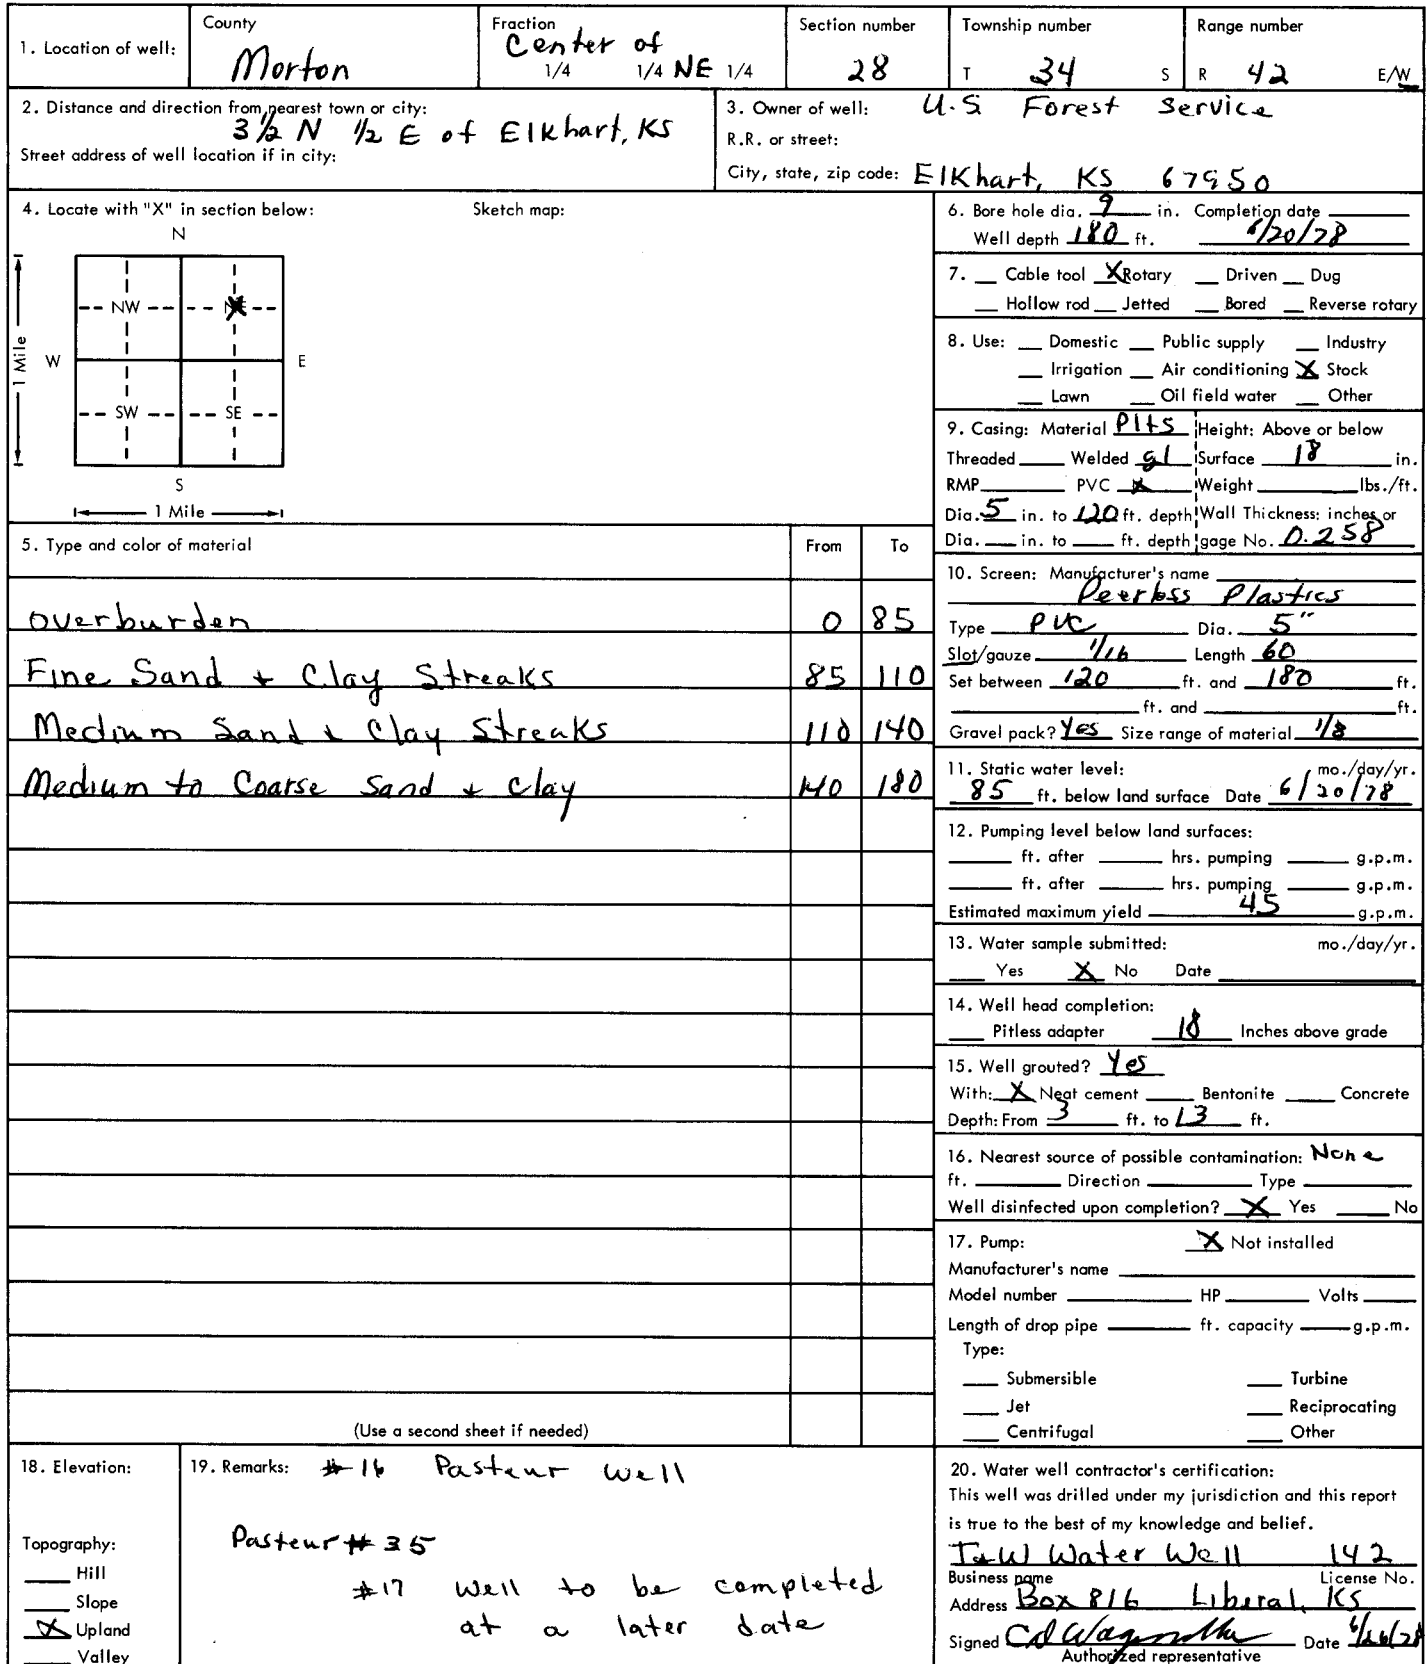 1. Location of well:
County
Morton
Fraction
Center of
1/4 1/4 NE 1/4
Section number
28
Township number
T 34 S
Range number
R 42 E/W
2. Distance and direction from nearest town or city:
3 1/2 N 1/2 E of Elkhart, KS
Street address of well location if in city:
3. Owner of well: U.S. Forest Service
R.R. or street:
City, state, zip code: Elkhart, KS 67950
4. Locate with "X" in section below: Sketch map:
N
NW NE
W E
SW SE
S
1 Mile
1 Mile
5. Type and color of material From To
overburden 0 85
Fine Sand + Clay Streaks 85 110
Medium Sand + Clay Streaks 110 140
Medium to Coarse Sand + Clay 140 180
(Use a second sheet if needed)
6. Bore hole dia. 9 in. Completion date
Well depth 180 ft. 6/20/78
7. Cable tool X Rotary Driven Dug
Hollow rod Jetted Bored Reverse rotary
8. Use: Domestic Public supply Industry
Irrigation Air conditioning X Stock
Lawn Oil field water Other
9. Casing: Material Plts Height: Above or below
Threaded Welded gl Surface 18 in.
RMP PVC X Weight lbs./ft.
Dia. 5 in. to 120 ft. depth Wall Thickness: inches or
Dia. in. to ft. depth gage No. 0.258
10. Screen: Manufacturer's name
Peerless Plastics
Type PVC Dia. 5"
Slot/gauze 1/16 Length 60
Set between 120 ft. and 180 ft.
ft. and ft.
Gravel pack? Yes Size range of material 1/8
11. Static water level: mo./day/yr.
85 ft. below land surface Date 6/20/78
12. Pumping level below land surfaces:
ft. after hrs. pumping g.p.m.
ft. after hrs. pumping g.p.m.
Estimated maximum yield 45 g.p.m.
13. Water sample submitted: mo./day/yr.
Yes X No Date
14. Well head completion:
Pitless adapter 18 Inches above grade
15. Well grouted? Yes
With: X Neat cement Bentonite Concrete
Depth: From 3 ft. to 13 ft.
16. Nearest source of possible contamination: None
ft. Direction Type
Well disinfected upon completion? X Yes No
17. Pump: X Not installed
Manufacturer's name
Model number HP Volts
Length of drop pipe ft. capacity g.p.m.
Type:
Submersible Turbine
Jet Reciprocating
Centrifugal Other
18. Elevation:
Topography:
Hill
Slope
X Upland
Valley
19. Remarks: #16 Pasteur Well
Pasteur #35
#17 Well to be completed
at a later date
20. Water well contractor's certification:
This well was drilled under my jurisdiction and this report
is true to the best of my knowledge and belief.
T&W Water Well 142
Business name License No.
Address Box 816 Liberal, KS
Signed Date 6/26/78
Authorized representative